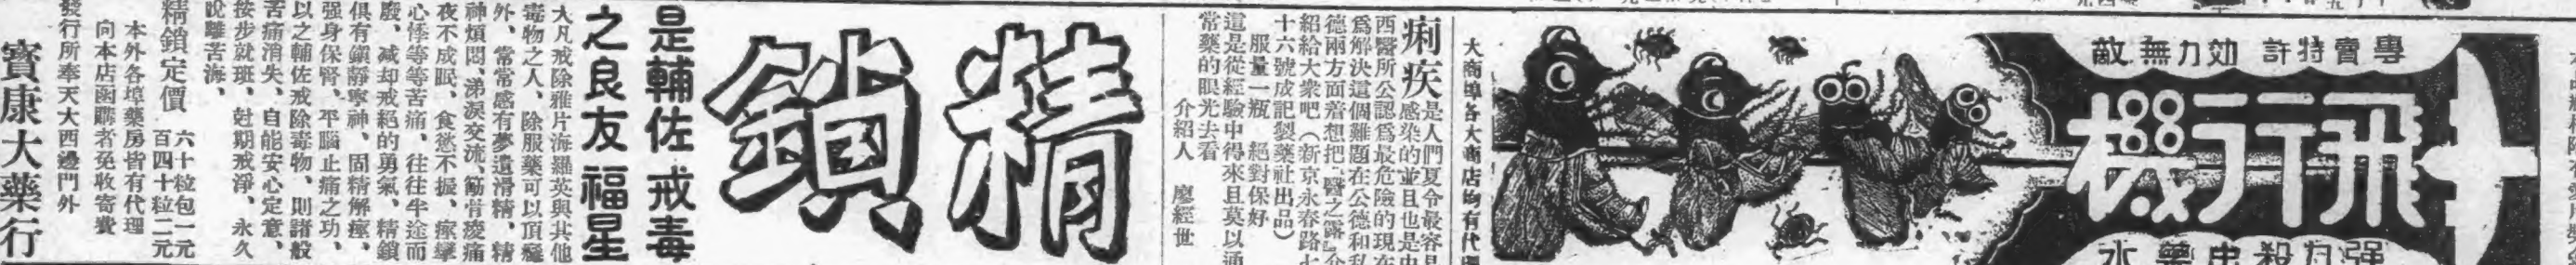 專賣特許 効力無敵
飛行機
强力殺虫藥水
大商埠各大商店均有代
痢疾是人們夏令最容易
感染的並且也是中
西醫所公認爲最危險的現在
爲解決這個難題在公德和私
德兩方面着想把『醫之露』介
紹給大衆吧(新京永春路七
十六號成記製藥社出品)
服量一瓶 絕對保好
這是從經驗中得來且莫以通
常藥的眼光去看
介紹人 廖經世
精鎖
是輔佐戒毒
之良友福星
大凡戒除雅片海羅英與其他
毒物之人、除服藥可以頂癮
外、常常感有夢遺滑精、精
神煩悶、涕淚交流、筋骨痠痛
夜不成眠、食慾不振、痳攣
心悸等等苦痛、往往半途而
廢、减却戒絕的勇氣、精鎖
俱有鎭靜寧神、固精解痙、
强身保腎、平腦止痛之功、
以之輔佐戒除毒物、則諸般
苦痛消失、自能安心定意、
按步就班、尅期戒淨、永久
脫離苦海、
精鎖定價 六十粒包一元
百四十粒二元
本外各埠藥房皆有代理
向本店函購者免收寄費
發行所奉天大西邊門外
寶康大藥行